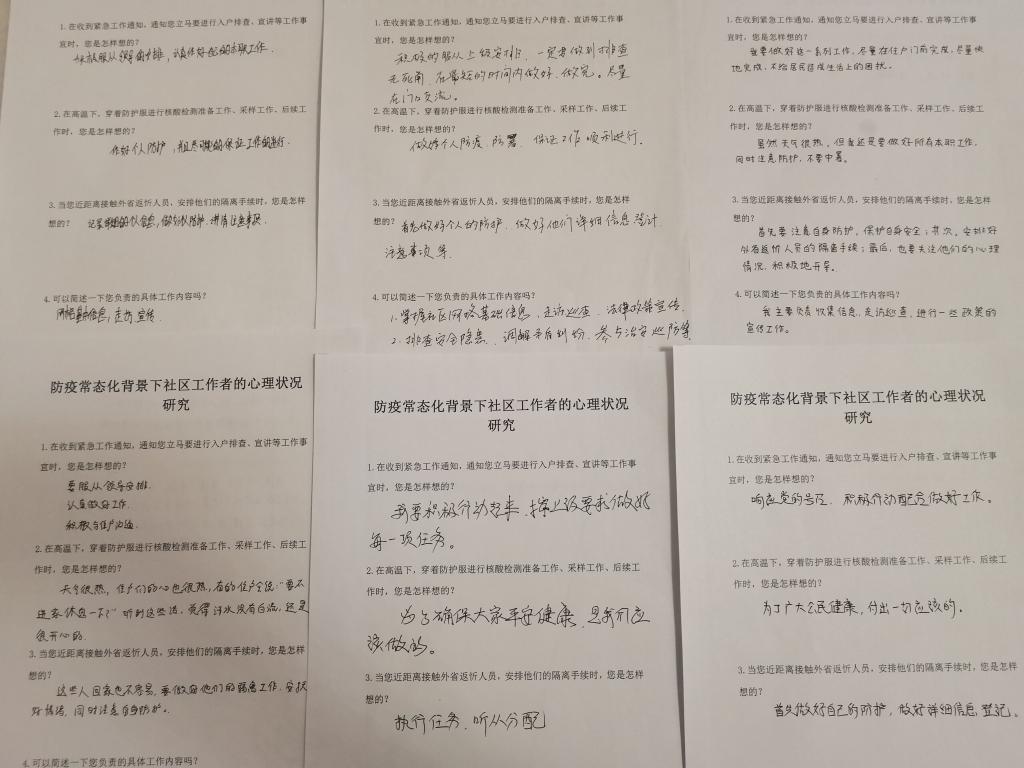 1.在收到紧急工作通知，通知您立马要进行入户排查、宣讲等工作事
宜时，您是怎样想的？
积极服从领导安排，认真作好自己的本职工作。
2.在高温下，穿着防护服进行核酸检测准备工作、采样工作、后续工
作时，您是怎样想的？
作好个人防护，保证工作的进行.
3.当您近距离接触外省返忻人员，安排他们的隔离手续时，您是怎样
想的？
4.可以简述一下您负责的具体工作内容吗？
走访，宣传
1.在收到紧急工作通知，通知您立马要进行入户排查、宣讲等工作事
宜时，您是怎样想的？
积极的服从上级安排，一定要做到排查
无死角，在最短的时间内做好、做完。尽量
在门口交流。
2.在高温下，穿着防护服进行核酸检测准备工作、采样工作、后续工
作时，您是怎样想的？
做好个人防疫、防暑，保证工作顺利进行.
3.当您近距离接触外省返忻人员，安排他们的隔离手续时，您是怎样
想的？ 首先做好个人的防护，做好他们详细信息登计
注意事项等.
4.可以简述一下您负责的具体工作内容吗？
1.掌握社区网格基础信息，走访巡查，法律政策宣传.
2.排查安全隐患，调解矛盾纠纷，参与治安巡防等
1.在收到紧急工作通知，通知您立马要进行入户排查、宣讲等工作事
宜时，您是怎样想的？
我要做好这一系列工作，尽量在住户门前完成，尽量快
地完成，不给居民造成生活上的困扰。
2.在高温下，穿着防护服进行核酸检测准备工作、采样工作、后续工
作时，您是怎样想的？
虽然天气很热，但我还是要做好所有本职工作，
同时注意防护，不要中暑。
3.当您近距离接触外省返忻人员，安排他们的隔离手续时，您是怎样
想的？
首先要注意自身防护，保护自身安全；其次，安排好
外省返忻人员的隔离手续；最后，也要关注他们的心理
情况，积极地开导。
4.可以简述一下您负责的具体工作内容吗？
我主要负责收集信息，走访巡查，进行一些政策的
宣传工作。
防疫常态化背景下社区工作者的心理状况
研究
1.在收到紧急工作通知，通知您立马要进行入户排查、宣讲等工作事
宜时，您是怎样想的？
要服从领导安排.
认真做好工作.
积极与住户沟通.
2.在高温下，穿着防护服进行核酸检测准备工作、采样工作、后续工
作时，您是怎样想的？
天气很热，住户们的心也很热，有的住户会说：“要不
进来休息一下”听到这些话，觉得汗水没有白流，还是
很开心的.
3.当您近距离接触外省返忻人员，安排他们的隔离手续时，您是怎样
想的？
这些人回来也不容易，要做好他们的隔离工作，安抚
好情绪，同时注意自身防护。
4.可以简述一下您负责的具体工作内容吗？
防疫常态化背景下社区工作者的心理状况
研究
1.在收到紧急工作通知，通知您立马要进行入户排查、宣讲等工作事
宜时，您是怎样想的？
我要积极行动起来，按上级要求做好
每一项任务。
2.在高温下，穿着防护服进行核酸检测准备工作、采样工作、后续工
作时，您是怎样想的？
为了确保大家平安健康，是我们应
该做的。
3.当您近距离接触外省返忻人员，安排他们的隔离手续时，您是怎样
想的？
执行任务、听从分配
防疫常态化背景下社区工作者的心理状况
研究
1.在收到紧急工作通知，通知您立马要进行入户排查、宣讲等工作事
宜时，您是怎样想的？
响应党的号召，积极行动配合做好工作。
2.在高温下，穿着防护服进行核酸检测准备工作、采样工作、后续工
作时，您是怎样想的？
为了广大公民健康，付出一切应该的.
3.当您近距离接触外省返忻人员，安排他们的隔离手续时，您是怎样
想的？
首先做好自己的防护，做好详细信息登记。